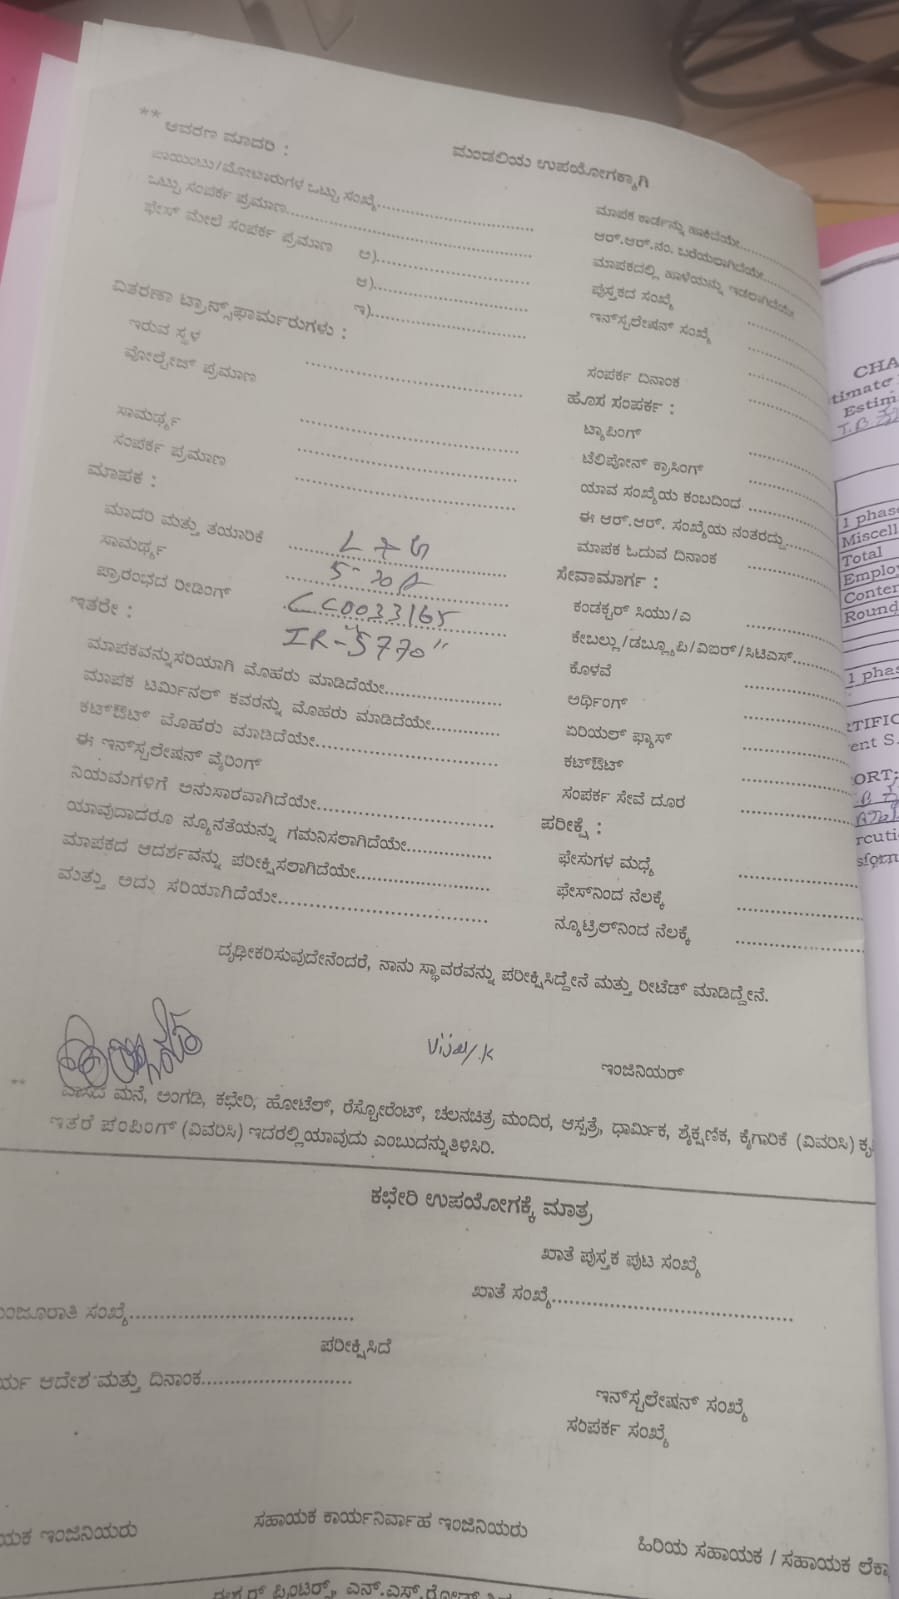 ** ಆವರಣ ಮಾದರಿ :
ಮಂಡಲಿಯ ಉಪಯೋಗಕ್ಕಾಗಿ
ಪಾಯಿಂಟು/ಮೋಟಾರುಗಳ ಒಟ್ಟು ಸಂಖ್ಯೆ..............................
ಒಟ್ಟು ಸಂಪರ್ಕ ಪ್ರಮಾಣ..............................
ಫೇಸ್ ಮೇಲೆ ಸಂಪರ್ಕ ಪ್ರಮಾಣ ಅ)..............................
ಆ)..............................
ಇ)..............................
ವಿತರಣಾ ಟ್ರಾನ್ಸ್‌ಫಾರ್ಮರುಗಳು :
ಇರುವ ಸ್ಥಳ ..............................
ವೋಲ್ಟೇಜ್ ಪ್ರಮಾಣ
ಸಾಮರ್ಥ್ಯ ..............................
ಸಂಪರ್ಕ ಪ್ರಮಾಣ ..............................
ಮಾಪಕ :
ಮಾದರಿ ಮತ್ತು ತಯಾರಿಕೆ L & G
ಸಾಮರ್ಥ್ಯ 5-30A
ಪ್ರಾರಂಭದ ರೀಡಿಂಗ್ CC0033165
ಇತರೇ : IR-5770"
ಮಾಪಕವನ್ನು ಸರಿಯಾಗಿ ಮೊಹರು ಮಾಡಿದೆಯೇ....................
ಮಾಪಕ ಟರ್ಮಿನಲ್ ಕವರನ್ನು ಮೊಹರು ಮಾಡಿದೆಯೇ............
ಕಟ್‌ಔಟ್ ಮೊಹರು ಮಾಡಿದೆಯೇ..............................
ಈ ಇನ್‌ಸ್ಟಲೇಷನ್ ವೈರಿಂಗ್
ನಿಯಮಗಳಿಗೆ ಅನುಸಾರವಾಗಿದೆಯೇ..............................
ಯಾವುದಾದರೂ ನ್ಯೂನತೆಯನ್ನು ಗಮನಿಸಲಾಗಿದೆಯೇ...............
ಮಾಪಕದ ಆದರ್ಶವನ್ನು ಪರೀಕ್ಷಿಸಲಾಗಿದೆಯೇ....................
ಮತ್ತು ಅದು ಸರಿಯಾಗಿದೆಯೇ..............................
ಮಾಪಕ ಕಾರ್ಡನ್ನು ಹಾಕಿದೆಯೇ............
ಆರ್.ಆರ್.ನಂ. ಬರೆಯಲಾಗಿದೆಯೇ............
ಮಾಪಕದಲ್ಲಿ ಹಾಳೆಯನ್ನು ಇಡಲಾಗಿದೆಯೇ
ಪುಸ್ತಕದ ಸಂಖ್ಯೆ ............
ಇನ್‌ಸ್ಟಲೇಷನ್ ಸಂಖ್ಯೆ ............
ಸಂಪರ್ಕ ದಿನಾಂಕ ............
ಹೊಸ ಸಂಪರ್ಕ :
ಟ್ಯಾಪಿಂಗ್ ............
ಟೆಲಿಪೋನ್ ಕ್ರಾಸಿಂಗ್ ............
ಯಾವ ಸಂಖ್ಯೆಯ ಕಂಬದಿಂದ ............
ಈ ಆರ್.ಆರ್. ಸಂಖ್ಯೆಯ ನಂತರದ್ದು............
ಮಾಪಕ ಓದುವ ದಿನಾಂಕ ............
ಸೇವಾಮಾರ್ಗ :
ಕಂಡಕ್ಟರ್ ಸಿಯು/ಎ ............
ಕೇಬಲ್ಲು/ಡಬ್ಲ್ಯೂಪಿ/ವಿಐರ್/ಸಿಟಿಎಸ್............
ಕೊಳವೆ ............
ಅರ್ಥಿಂಗ್ ............
ಏರಿಯಲ್ ಫ್ಯೂಸ್ ............
ಕಟ್‌ಔಟ್ ............
ಸಂಪರ್ಕ ಸೇವೆ ದೂರ ............
ಪರೀಕ್ಷೆ :
ಫೇಸುಗಳ ಮಧ್ಯೆ ............
ಫೇಸ್‌ನಿಂದ ನೆಲಕ್ಕೆ ............
ನ್ಯೂಟ್ರಿಲ್‌ನಿಂದ ನೆಲಕ್ಕೆ ............
ದೃಢೀಕರಿಸುವುದೇನೆಂದರೆ, ನಾನು ಸ್ಥಾವರವನ್ನು ಪರೀಕ್ಷಿಸಿದ್ದೇನೆ ಮತ್ತು ರೀಟೆಡ್ ಮಾಡಿದ್ದೇನೆ.
Vijay.K
ಇಂಜಿನಿಯರ್
** ವಾಸದ ಮನೆ, ಅಂಗಡಿ, ಕಛೇರಿ, ಹೋಟೆಲ್, ರೆಸ್ಟೋರೆಂಟ್, ಚಲನಚಿತ್ರ ಮಂದಿರ, ಆಸ್ಪತ್ರೆ, ಧಾರ್ಮಿಕ, ಶೈಕ್ಷಣಿಕ, ಕೈಗಾರಿಕೆ (ವಿವರಿಸಿ)
ಇತರೆ ಪಂಪಿಂಗ್ (ವಿವರಿಸಿ) ಇದರಲ್ಲಿಯಾವುದು ಎಂಬುದನ್ನುತಿಳಿಸಿರಿ.
ಕಛೇರಿ ಉಪಯೋಗಕ್ಕೆ ಮಾತ್ರ
ಖಾತೆ ಪುಸ್ತಕ ಪುಟ ಸಂಖ್ಯೆ
ಖಾತೆ ಸಂಖ್ಯೆ..............................
ಂಜೂರಾತಿ ಸಂಖ್ಯೆ..............................
ಪರೀಕ್ಷಿಸಿದೆ
ರ್ಯ ಆದೇಶ ಮತ್ತು ದಿನಾಂಕ....................
ಇನ್‌ಸ್ಟಲೇಷನ್ ಸಂಖ್ಯೆ
ಸಂಪರ್ಕ ಸಂಖ್ಯೆ
ಯಕ ಇಂಜಿನಿಯರು
ಸಹಾಯಕ ಕಾರ್ಯನಿರ್ವಾಹ ಇಂಜಿನಿಯರು
ಹಿರಿಯ ಸಹಾಯಕ / ಸಹಾಯಕ ಲೆಕ್ಕಾ
CHA
timate
Estim
1 phase
Miscell
Total
Employ
Conten
Round
1 phas
RTIFIC
ent S.
ORT:
rcuti
sform